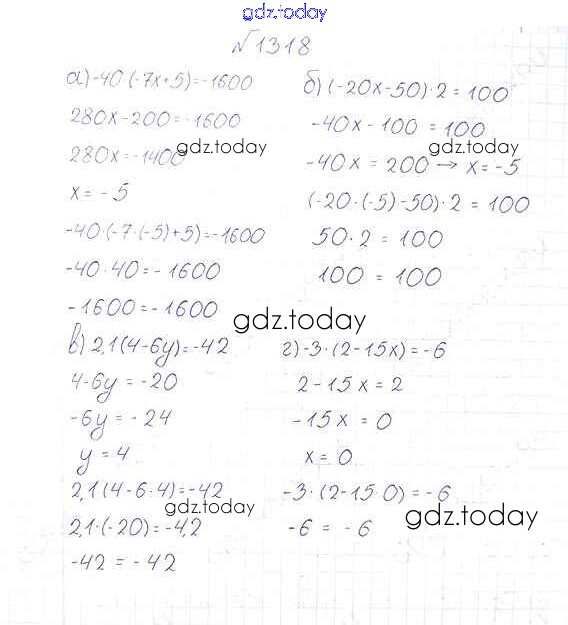 gdz.today
№1318
а) -40·(-7x+5)=-1600
280x-200=-1600
280x=-1400
x=-5
-40·(-7·(-5)+5)=-1600
-40·40=-1600
-1600=-1600
б) (-20x-50)·2=100
-40x-100=100
-40x=200→x=-5
(-20·(-5)-50)·2=100
50·2=100
100=100
gdz.today
gdz.today
gdz.today
в) 2,1(4-6y)=-42
4-6y=-20
-6y=-24
y=4
2,1(4-6·4)=-42
2,1·(-20)=-4,2
-42=-42
г) -3·(2-15x)=-6
2-15x=2
-15x=0
x=0
-3·(2-15·0)=-6
-6=-6
gdz.today
gdz.today